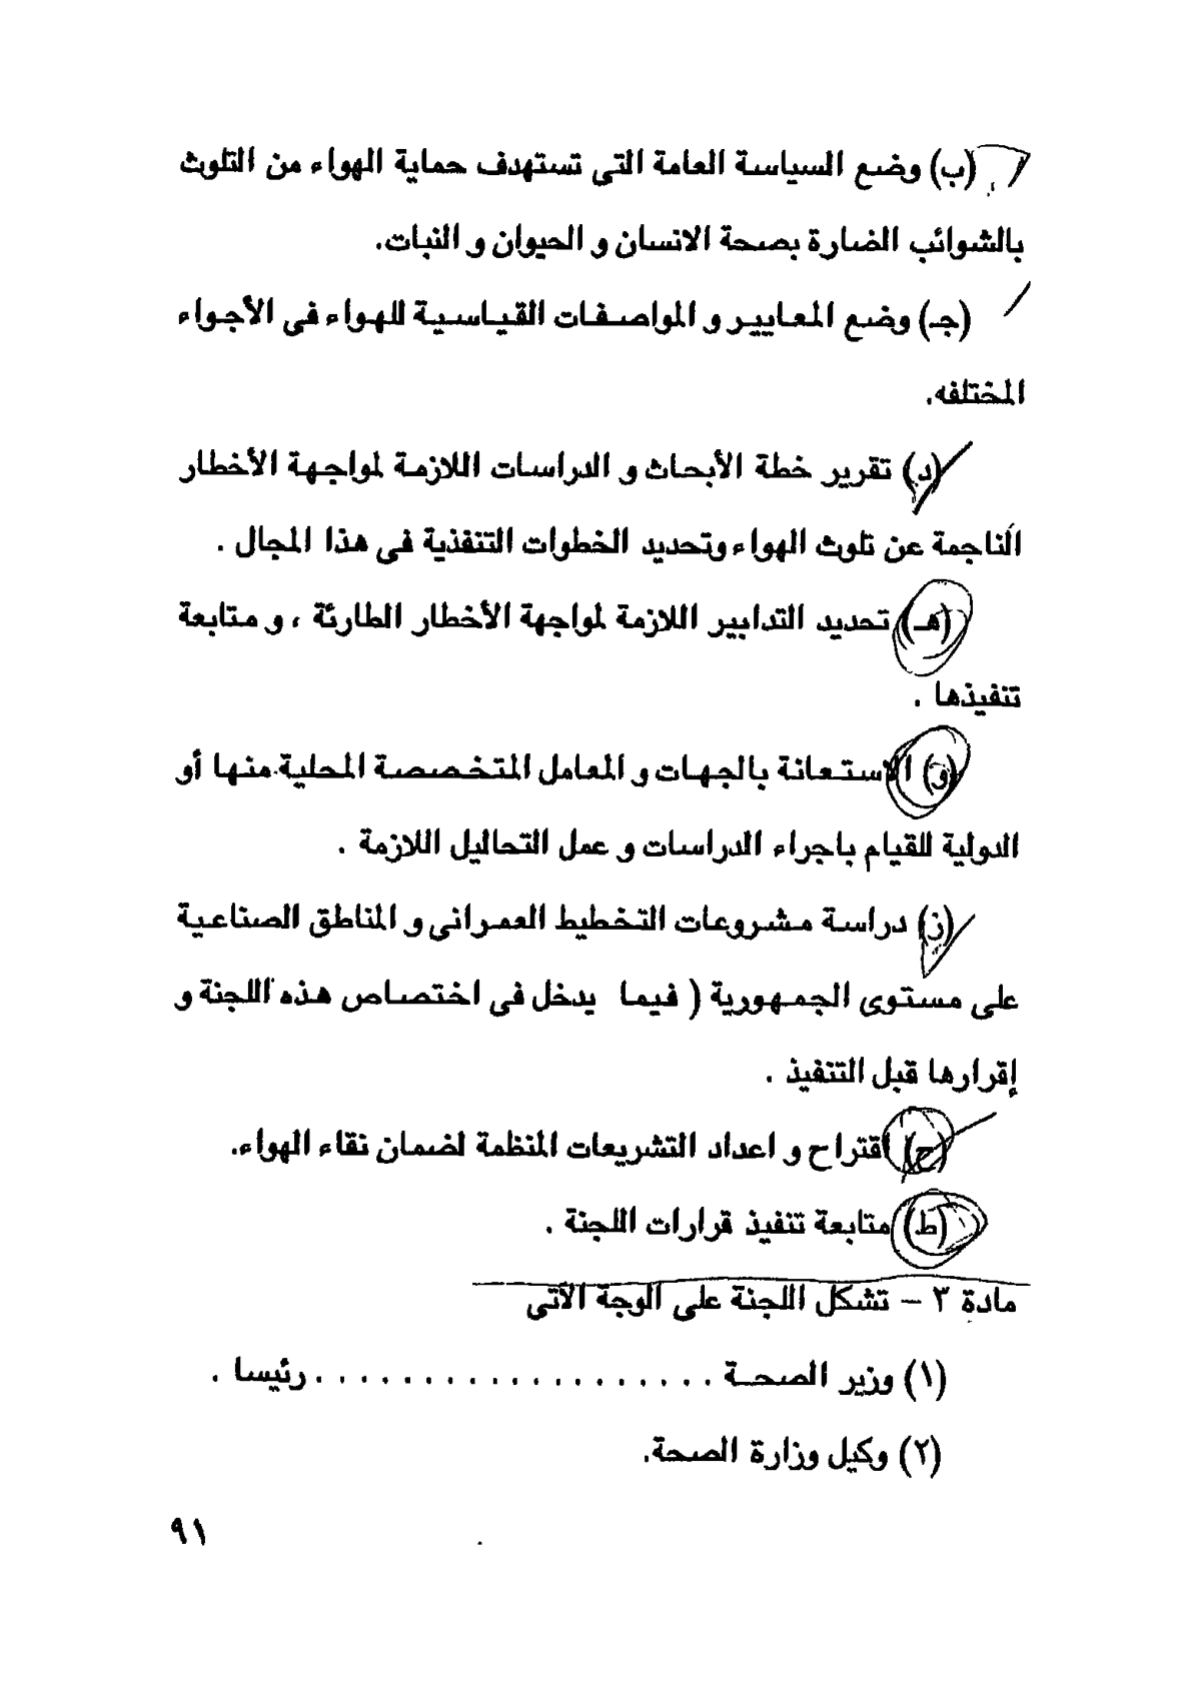 (ب) وضع السياسة العامة التى تستهدف حماية الهواء من التلوث
بالشوائب الضارة بصحة الانسان و الحيوان و النبات.
(جـ) وضع المعايير و المواصفات القياسية للهواء فى الأجواء
المختلفه.
(د) تقرير خطة الأبحاث و الدراسات اللازمة لمواجهة الأخطار
الناجمة عن تلوث الهواء وتحديد الخطوات التنفذية فى هذا المجال .
(هـ) تحديد التدابير اللازمة لمواجهة الأخطار الطارئة ، و متابعة
تنفيذها .
(و) الاستعانة بالجهات و المعامل المتخصصة المحلية منها أو
الدولية للقيام باجراء الدراسات و عمل التحاليل اللازمة .
(ز) دراسة مشروعات التخطيط العمرانى و المناطق الصناعية
على مستوى الجمهورية ( فيما يدخل فى اختصاص هذه اللجنة و
إقرارها قبل التنفيذ .
(ح) اقتراح و اعداد التشريعات المنظمة لضمان نقاء الهواء.
(ط) متابعة تنفيذ قرارات اللجنة .
مادة ٣ – تشكل اللجنة على الوجة الآتى
(١) وزير الصحة . . . . . . . . . . . . . . . . . . . رئيسا .
(٢) وكيل وزارة الصحة.
٩١